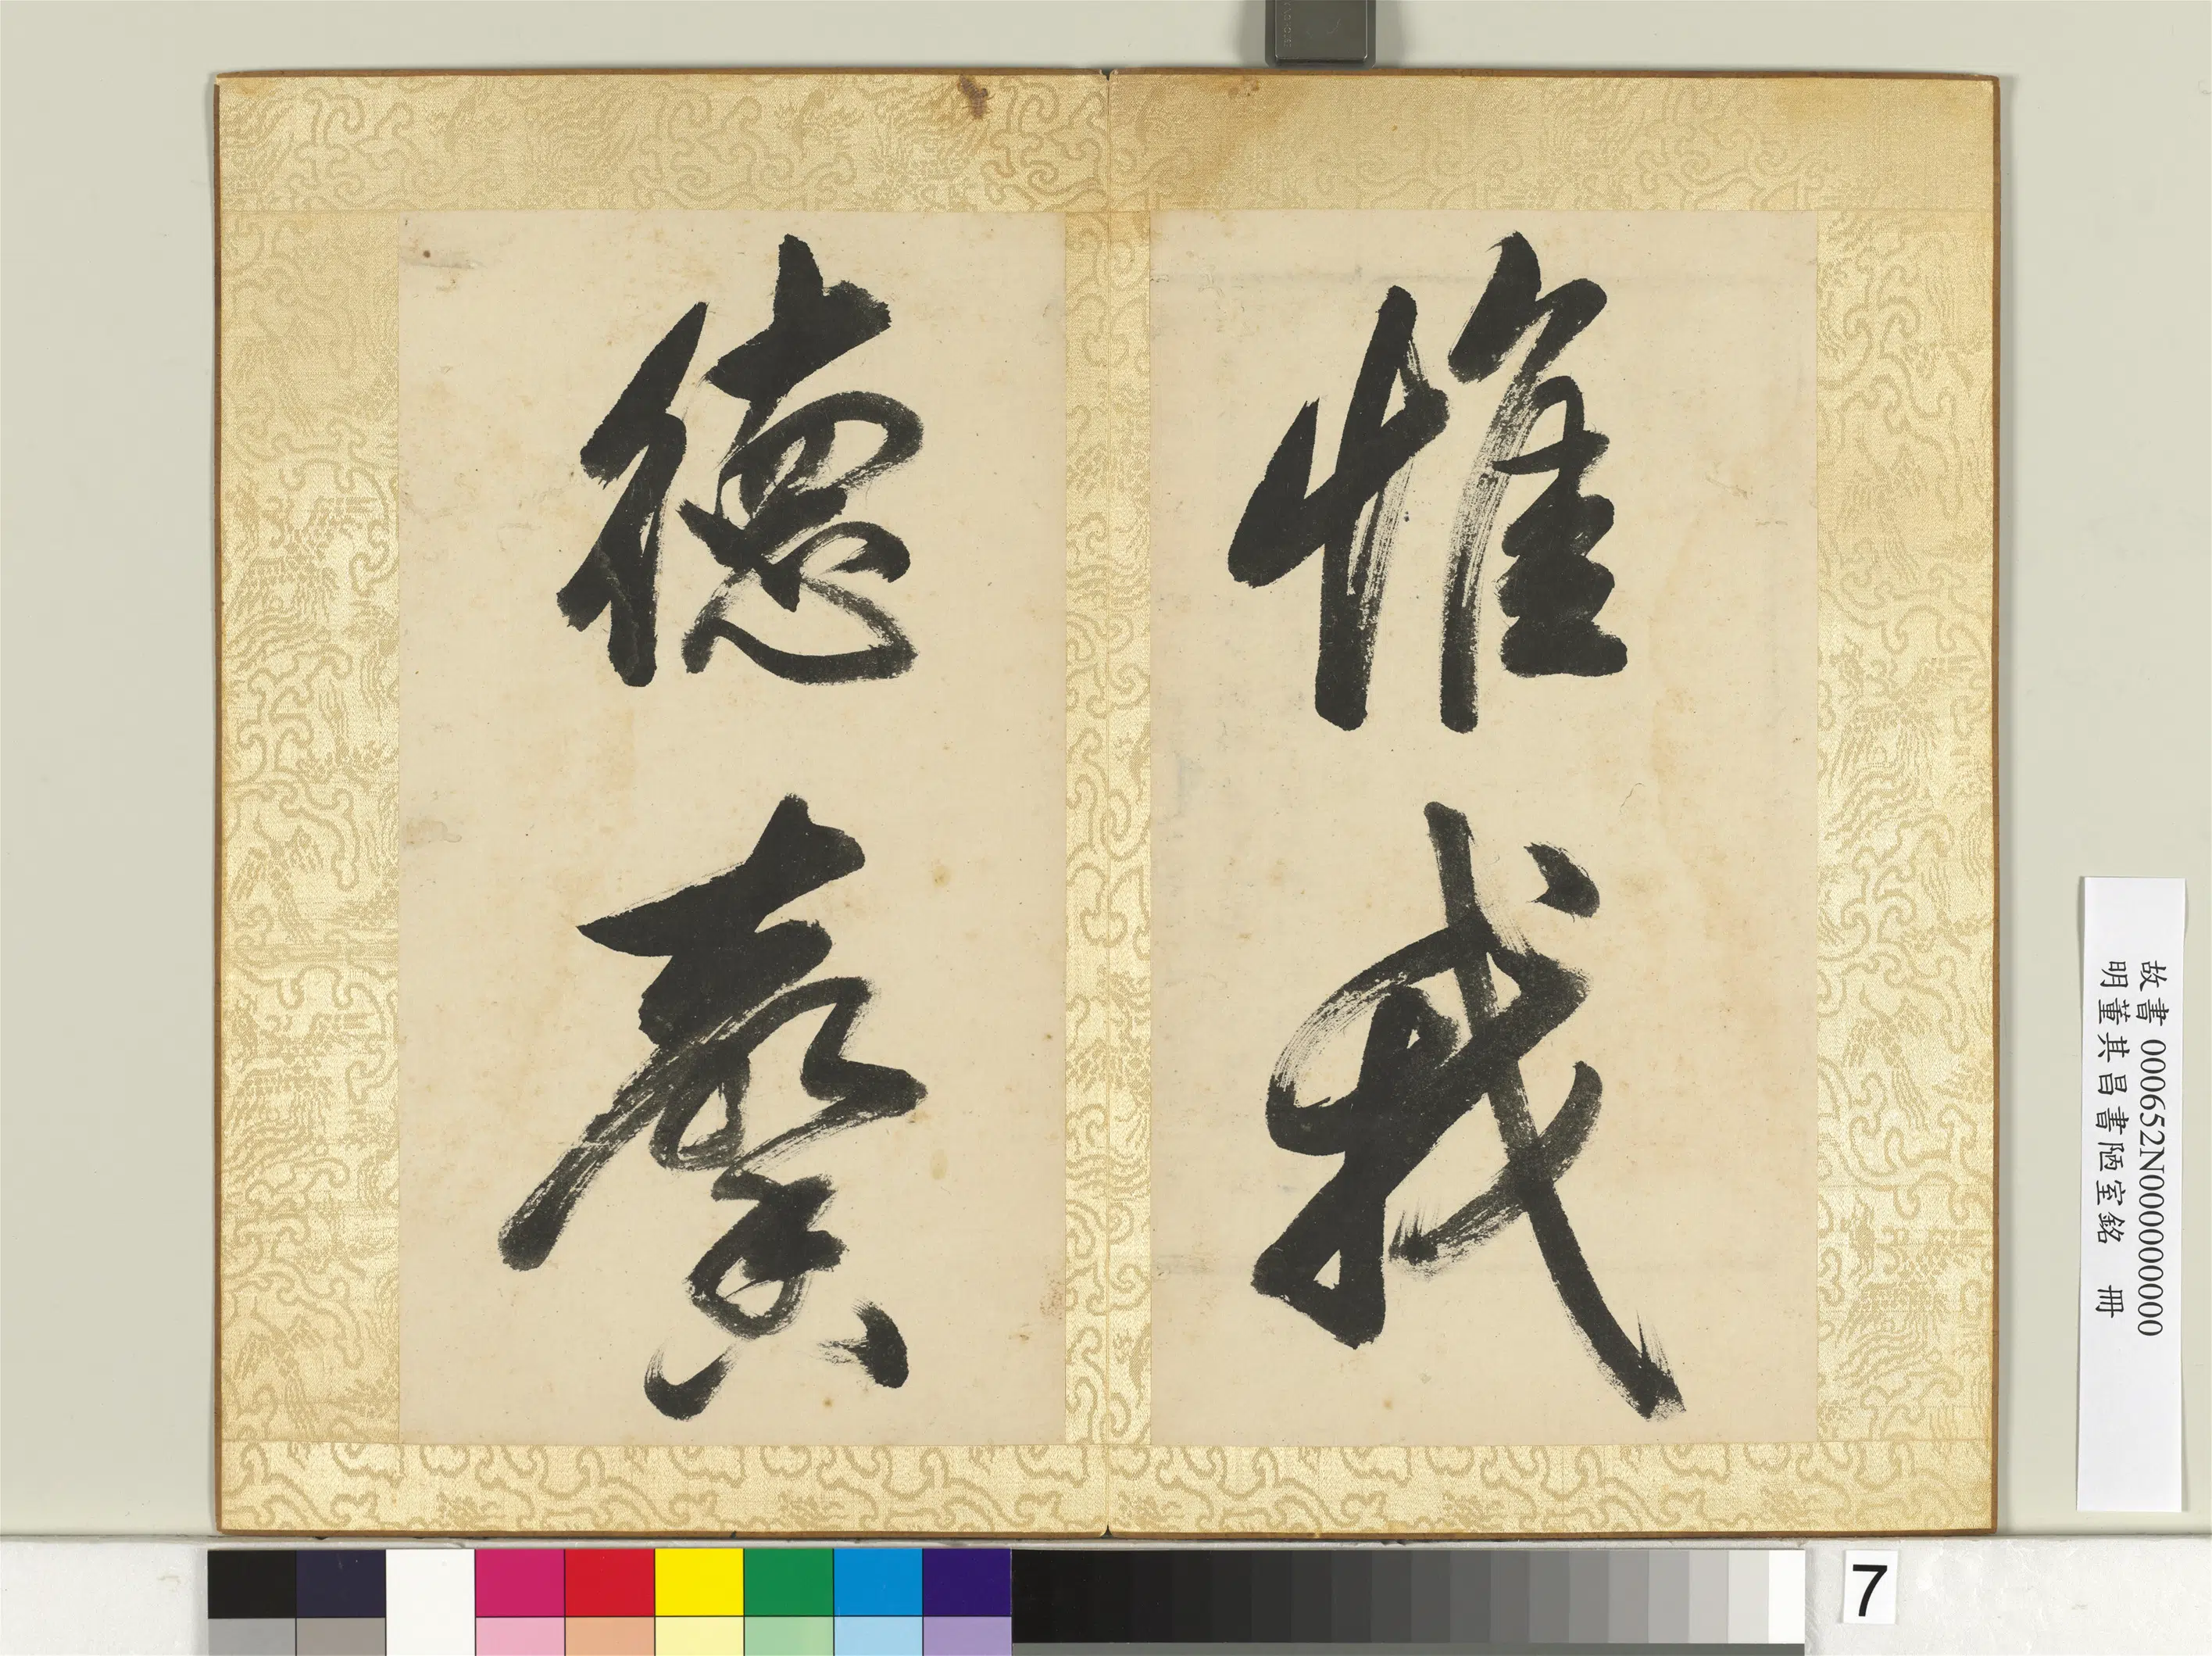 惟我
德馨
故書 000652N000000000
明董其昌書陋室銘 冊
7